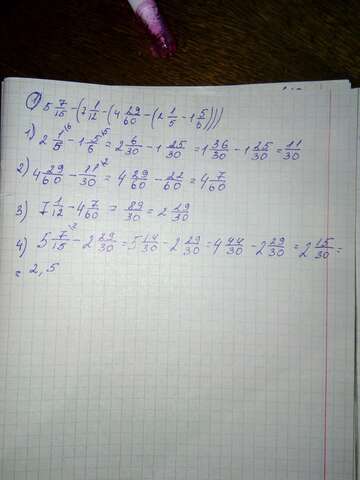 1) 5 7/15 - (7 1/12 - (4 29/60 - (2 1/5 - 1 5/6)))
1) 2 1/5 - 1 5/6 = 2 6/30 - 1 25/30 = 1 36/30 - 1 25/30 = 11/30
2) 4 29/60 - 11/30 = 4 29/60 - 22/60 = 4 7/60
3) 7 1/12 - 4 7/60 = 89/30 = 2 29/30
4) 5 7/15 - 2 29/30 = 5 14/30 - 2 29/30 = 4 44/30 - 2 29/30 = 2 15/30 =
= 2,5